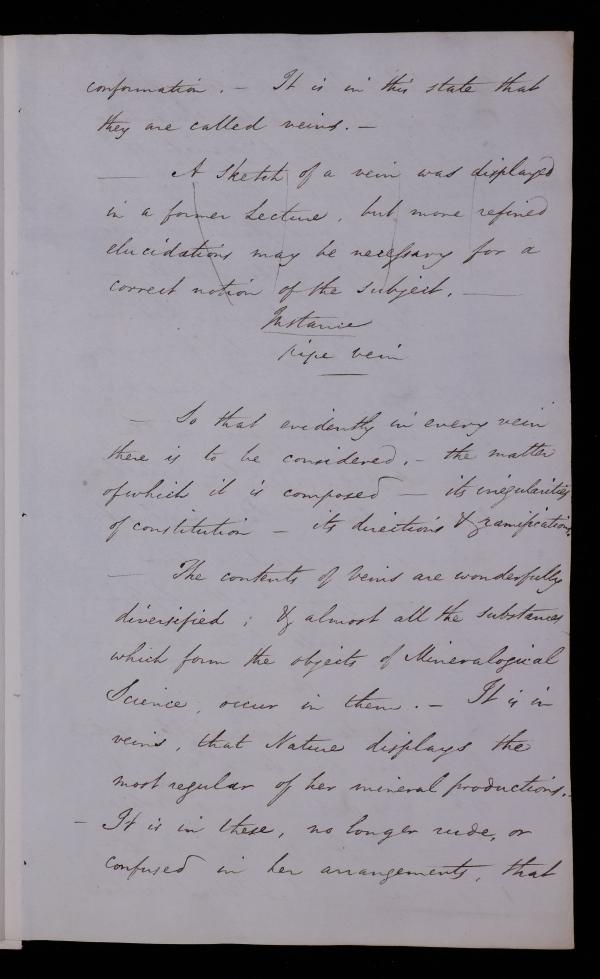 conformation. – It is in this state that
they are called veins. –
— A Sketch of a vein was displayed
in a former Lecture, but more refined
elucidations may be necessary for a
correct notion of the subject. —
Instance
pipe vein
– So that evidently in every vein
there is to be considered, – the matter
of which it is composed – its irregularities
of constitution – its directions & ramifications.
— The contents of veins are wonderfully
diversified; & almost all the substances
which form the objects of Mineralogical
Science, occur in them. – It is in
veins, that Nature displays the
most regular of her mineral productions. –
– It is in these, no longer rude, or
confused in her arrangements, that